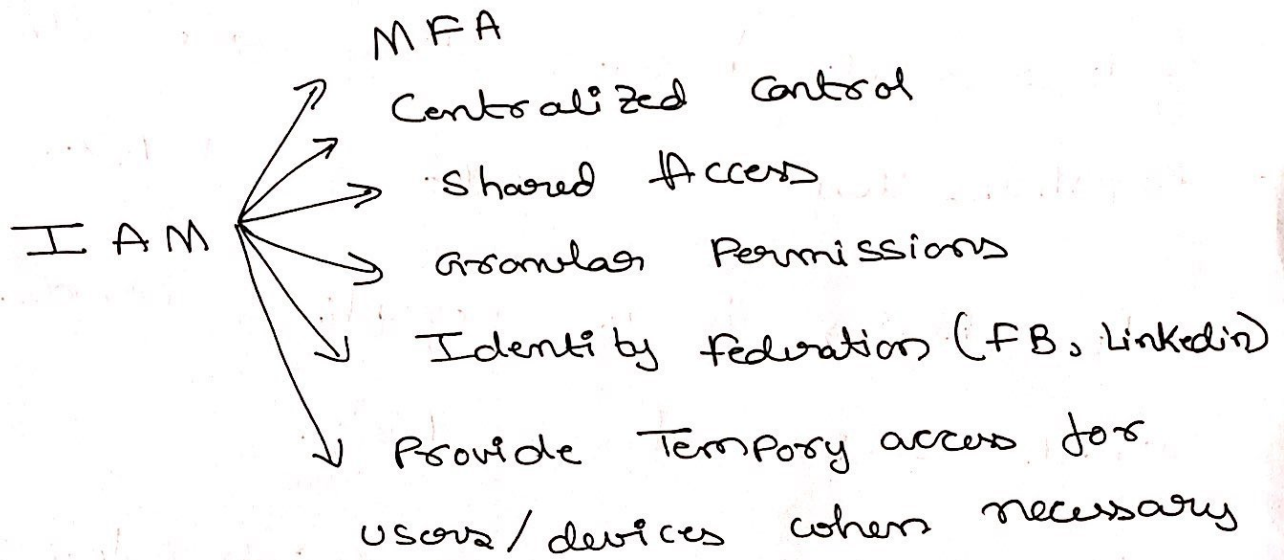 MFA
Centralized Control
Shared Access
IAM
Granular Permissions
Identity federation (FB, Linkedin)
Provide Tempory access for
users/devices when necessary